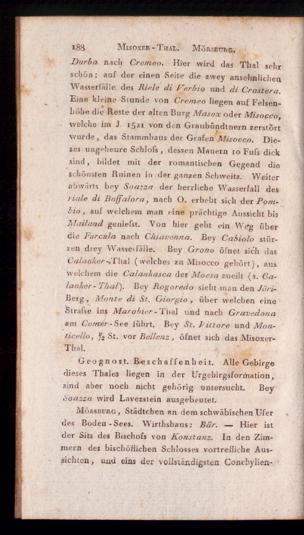 188 MISOXER-THAL. MÖRSBURG.
Durba nach Cremeo. Hier wird das Thal sehr
schön; auf der einen Seite die zwey ansehnlichen
Wasserfälle des Riale di Verbio und di Crastera.
Eine kleine Stunde von Cremeo liegen auf Felsen-
höhe die Reste der alten Burg Masox oder Misocco,
welche im J. 1521 von den Graubündtnern zerstört
wurde, das Stammhaus der Grafen Misocco. Die-
ses ungeheure Schloss, dessen Mauern 10 Fuss dick
sind, bildet mit der romantischen Gegend die
schönsten Ruinen in der ganzen Schweitz. Weiter
abwärts bey Soazza der herrliche Wasserfall des
riale di Buffalora, nach O. erhebt sich der Pom-
bio, auf welchem man eine prächtige Aussicht bis
Mailand geniesst. Von hier geht ein Weg über
die Furcula nach Chiavenna. Bey Cabiolo stür-
zen drey Wasserfälle. Bey Grono öfnet sich das
Calanker-Thal (welches zu Misocco gehört), aus
welchem die Calankasca der Moesa zueilt (s. Ca-
lanker-Thal). Bey Rogoredo sieht man den Jöri-
Berg, Monte di St. Giorgio, über welchen eine
Strasse ins Marobier-Thal und nach Gravedona
am Comer-See führt. Bey St. Vittore und Mon-
ticello, ½ St. vor Bellenz, öfnet sich das Misoxer-
Thal.
Geognost. Beschaffenheit. Alle Gebirge
dieses Thales liegen in der Urgebirgsformation,
sind aber noch nicht gehörig untersucht. Bey
Soazza wird Lavezstein ausgebeutet.
MÖRSBURG, Städtchen an dem schwäbischen Ufer
des Boden-Sees. Wirthshaus: Bär. — Hier ist
der Sitz des Bischofs von Konstanz. In den Zim-
mern des bischöflichen Schlosses vortrefliche Aus-
sichten, und eins der vollständigsten Conchylien-